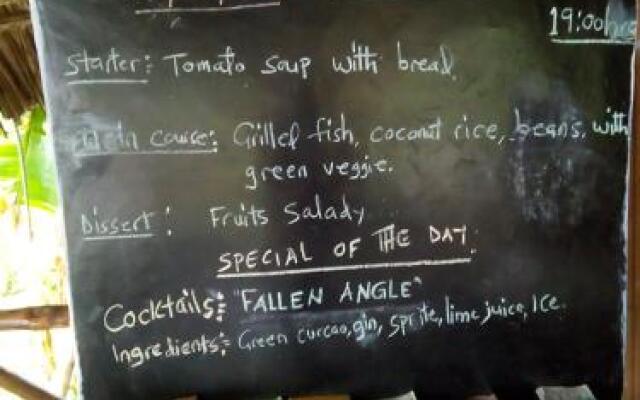 19:00hrs
Starter: Tomato soup with bread.
Main couse: Grilled fish, coconut rice, beans, with
green veggie.
Dissert: Fruits Salady
SPECIAL OF THE DAY:
Cocktails: "FALLEN ANGLE"
Ingredients: Green curcao, gin, sprite, lime juice, Ice.